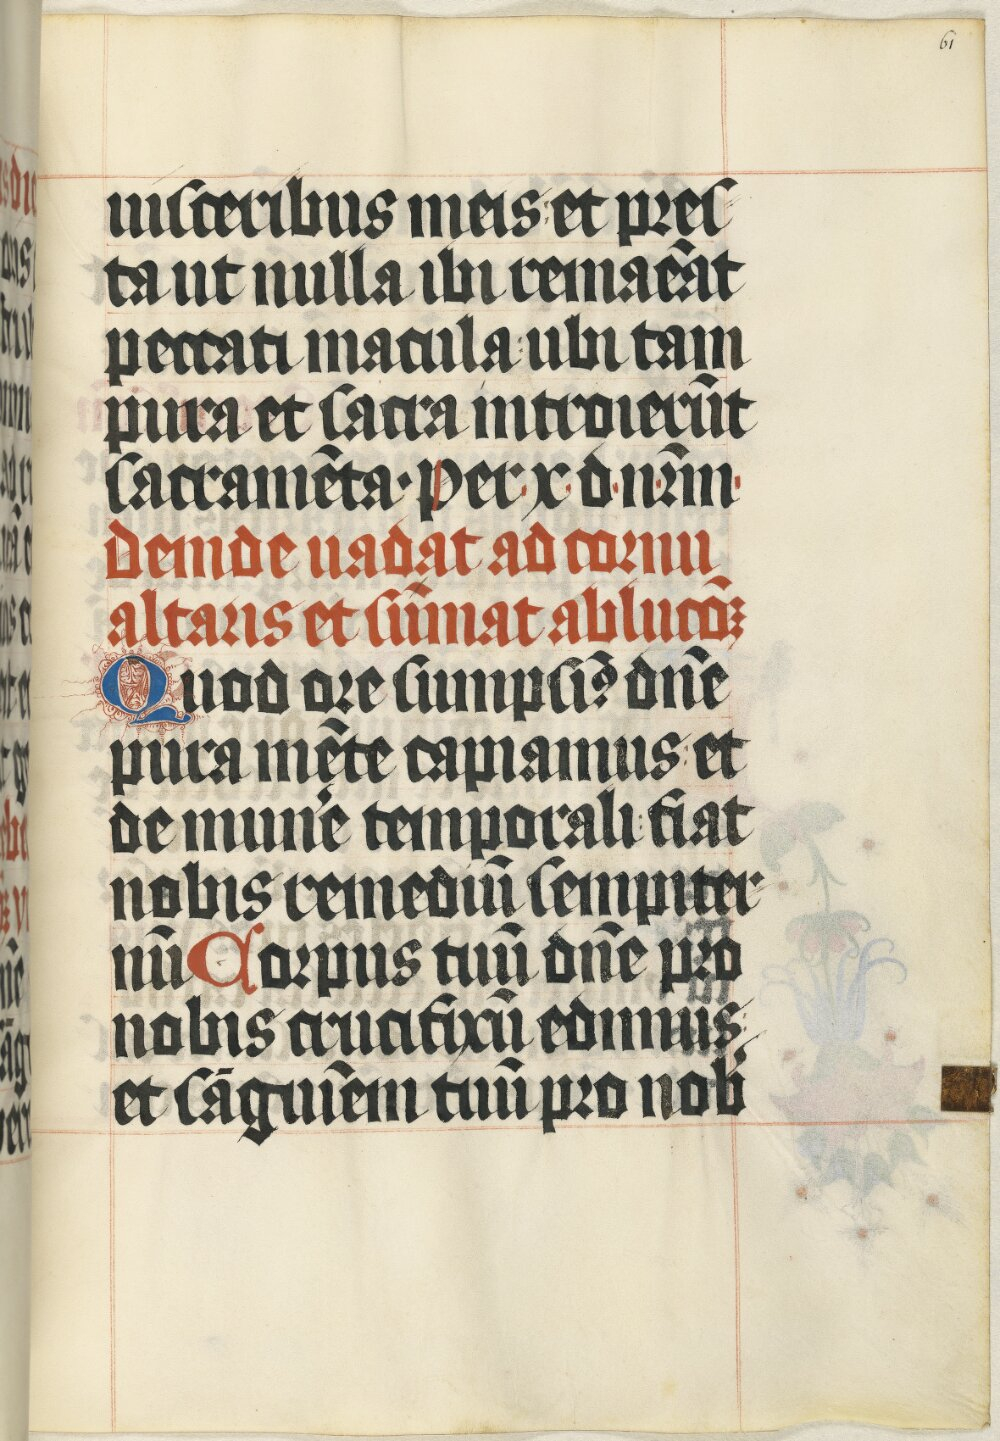 61
uisceribus meis et pres
ta ut nulla ibi remaēat
peccati macula ubi tam
pura et sacra introierūt
sacramēta· Per x d nr̄m·
deinde uadat ad cornu
altaris et sūmat ablucōꝫ
Quod ore sumpsiꝰ dn̄e
pura mēte capiamus et
de mun'e temporali fiat
nobis remediū sempiter
nū Corpus tuū dn̄e pro
nobis crucifixū edimus
et sāguīem tuū pro nob'